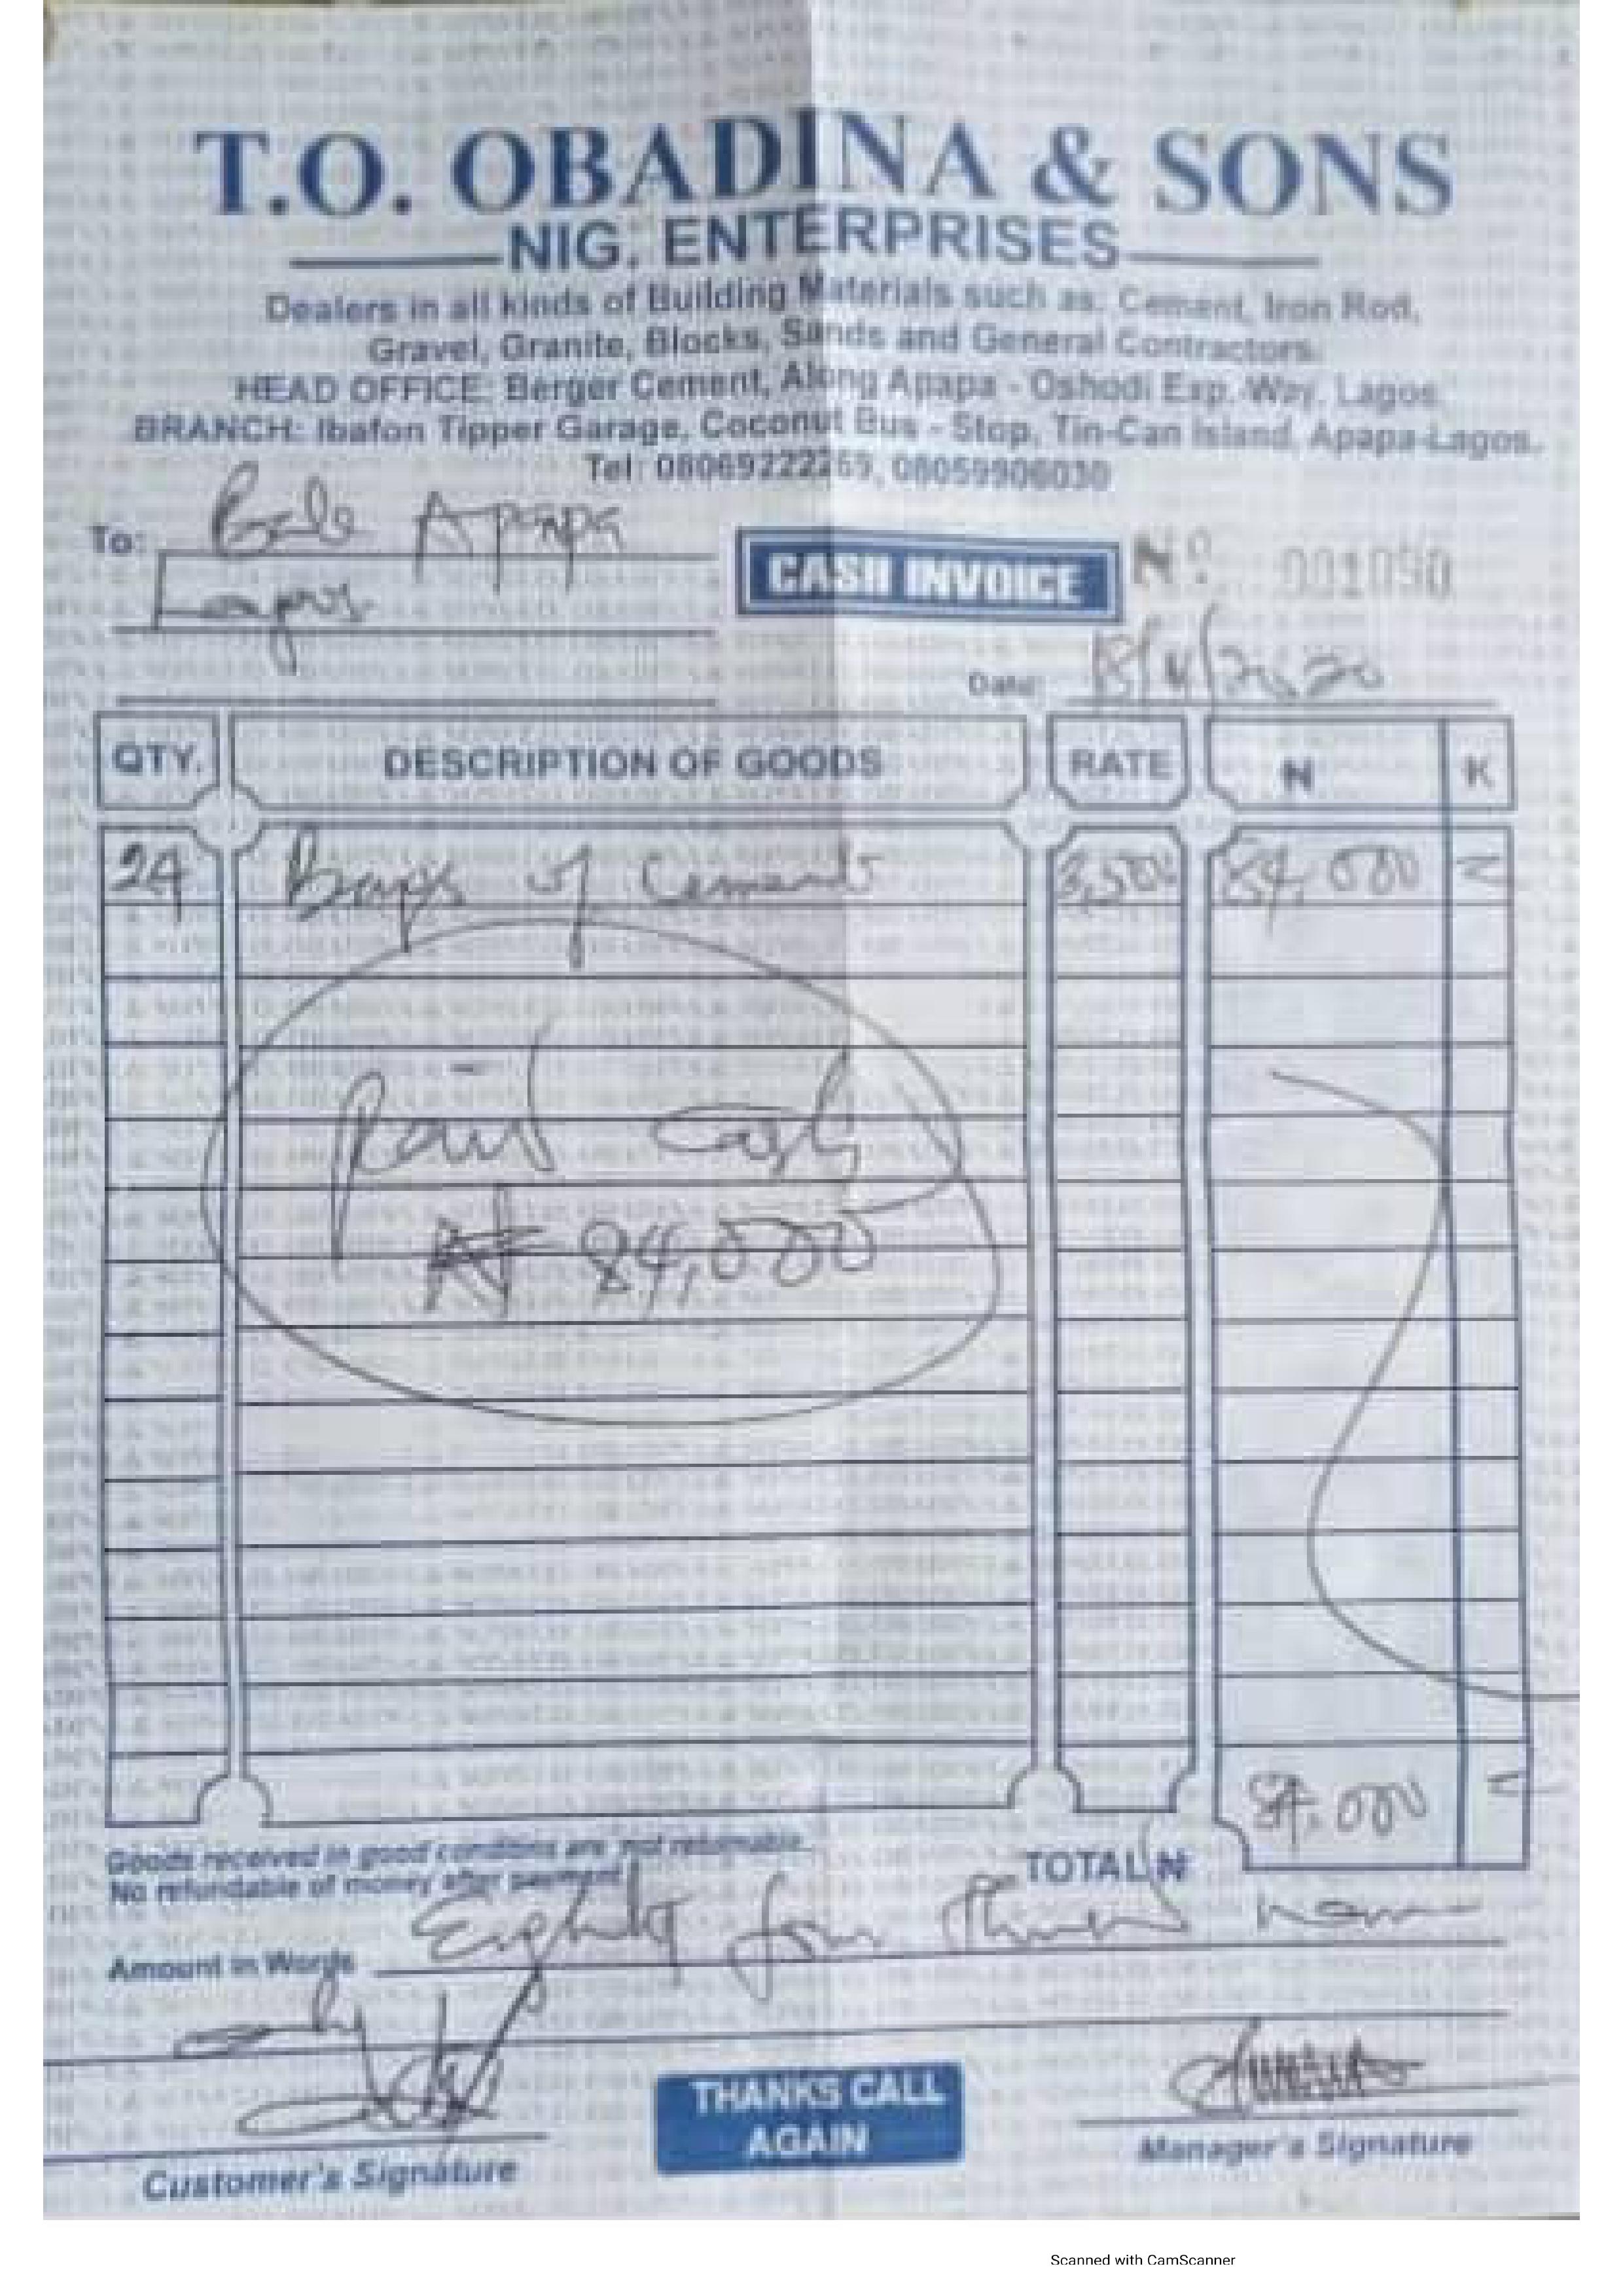 T.O. OBADINA & SONS
NIG. ENTERPRISES
Dealers in all kinds of Building Materials such as: Cement, Iron Rod,
Gravel, Granite, Blocks, Sands and General Contractors.
HEAD OFFICE: Berger Cement, Along Apapa - Oshodi Exp. Way, Lagos.
BRANCH: Ibafon Tipper Garage, Coconut Bus - Stop, Tin-Can Island, Apapa-Lagos.
Tel: 08069222269, 08059906030
To: Apapa
Lagos
CASH INVOICE
No. 001090
Date: /2020
QTY. DESCRIPTION OF GOODS RATE N K
24 Bags of Cement 3,500 84,000 =
Paid cash
₦ 84,000
84,000 =
Goods received in good conditions are not returnable.
No refundable of money after payment
TOTAL ₦
Amount in Words Eighty four Thousand Naira
THANKS CALL
AGAIN
Customer's Signature
Manager's Signature
Scanned with CamScanner